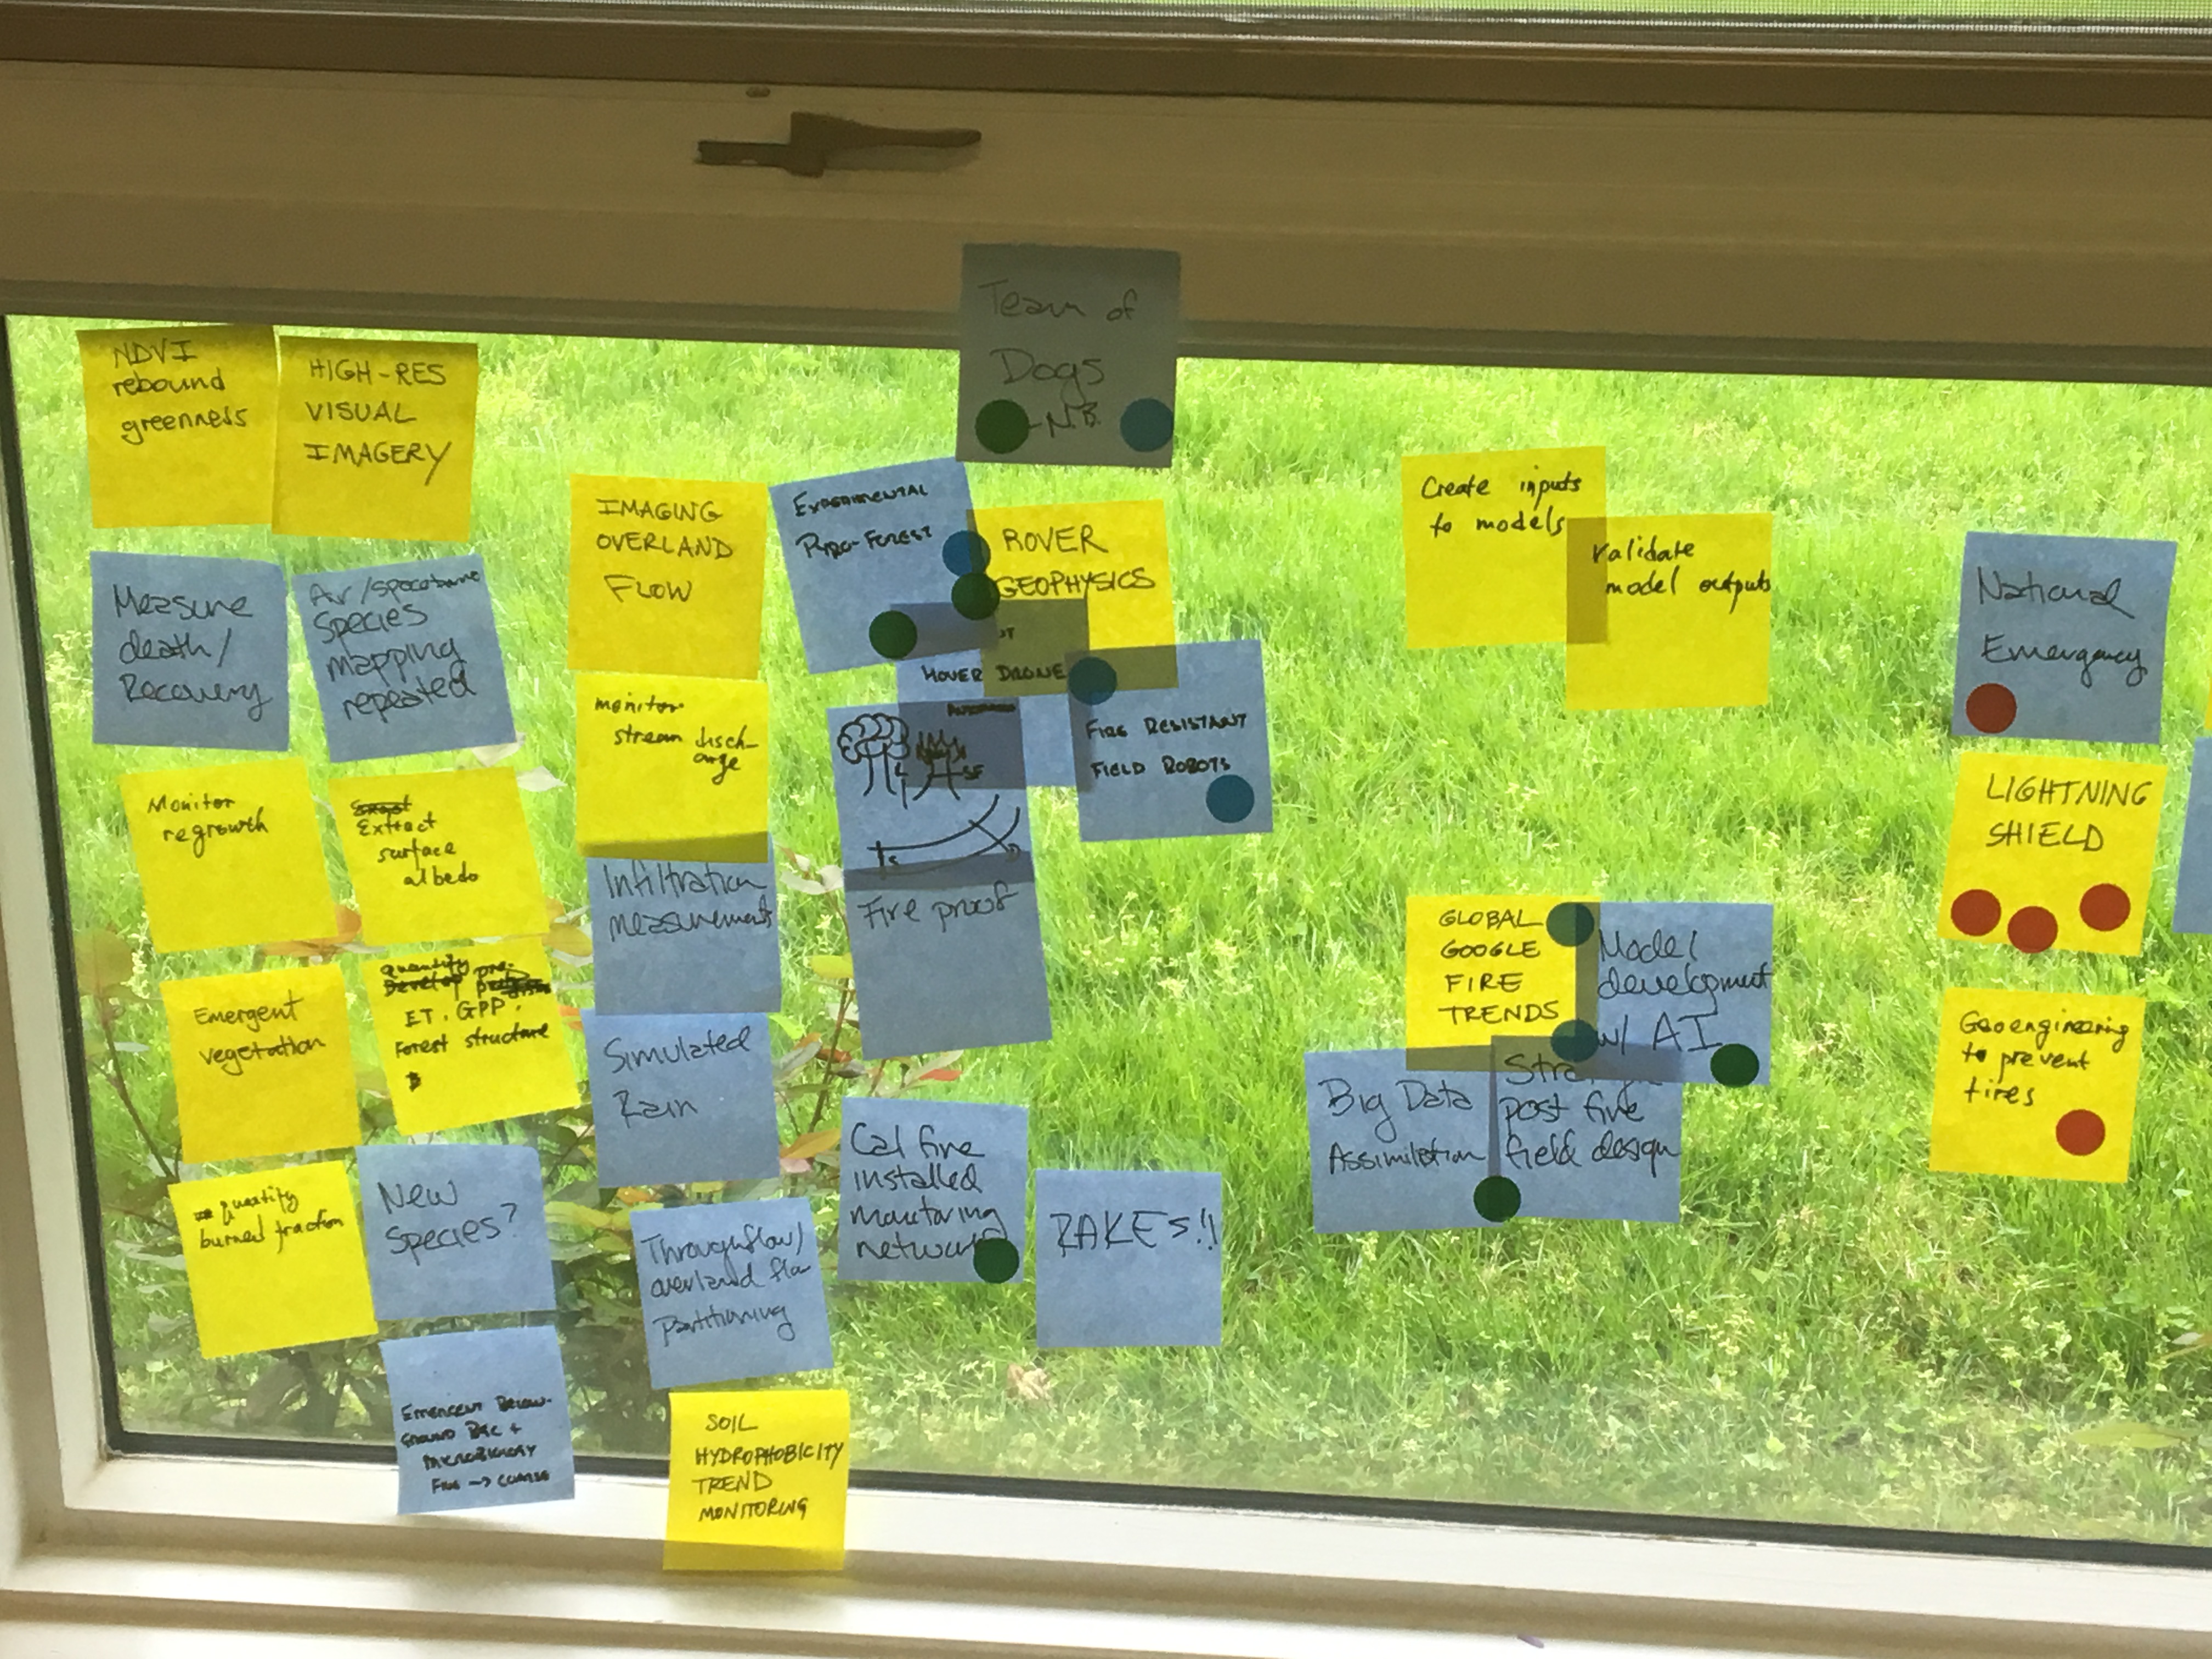 Team of
Dogs
-N.B.
NDVI
rebound
greenness
HIGH-RES
VISUAL
IMAGERY
Measure
death/
Recovery
Air/spaceborne
Species
mapping
repeated
Monitor
regrowth
Extract
surface
albedo
Emergent
vegetation
quantify pre-
ET, GPP,
Forest structure
quantify
burned fraction
New
Species?
EMERGENT BELOW-
GROUND BGC +
MICROBIOLOGY
FINE -> COARSE
IMAGING
OVERLAND
FLOW
monitor
stream disch-
arge
Infiltration
measurements
Simulated
Rain
Throughflow/
overland flow
Partitioning
SOIL
HYDROPHOBICITY
TREND
MONITORING
EXPERIMENTAL
PYRO-FOREST
ROVER
GEOPHYSICS
HOVER DRONE
FIRE RESISTANT
FIELD ROBOTS
SF
Fire proof
Cal fire
installed
monitoring
network
RAKES!!
Create inputs
to models
Validate
model outputs
GLOBAL
GOOGLE
FIRE
TRENDS
Model
development
w/ AI
Big Data
Assimilation
post fire
field design
National
Emergency
LIGHTNING
SHIELD
Geoengineering
to prevent
fires